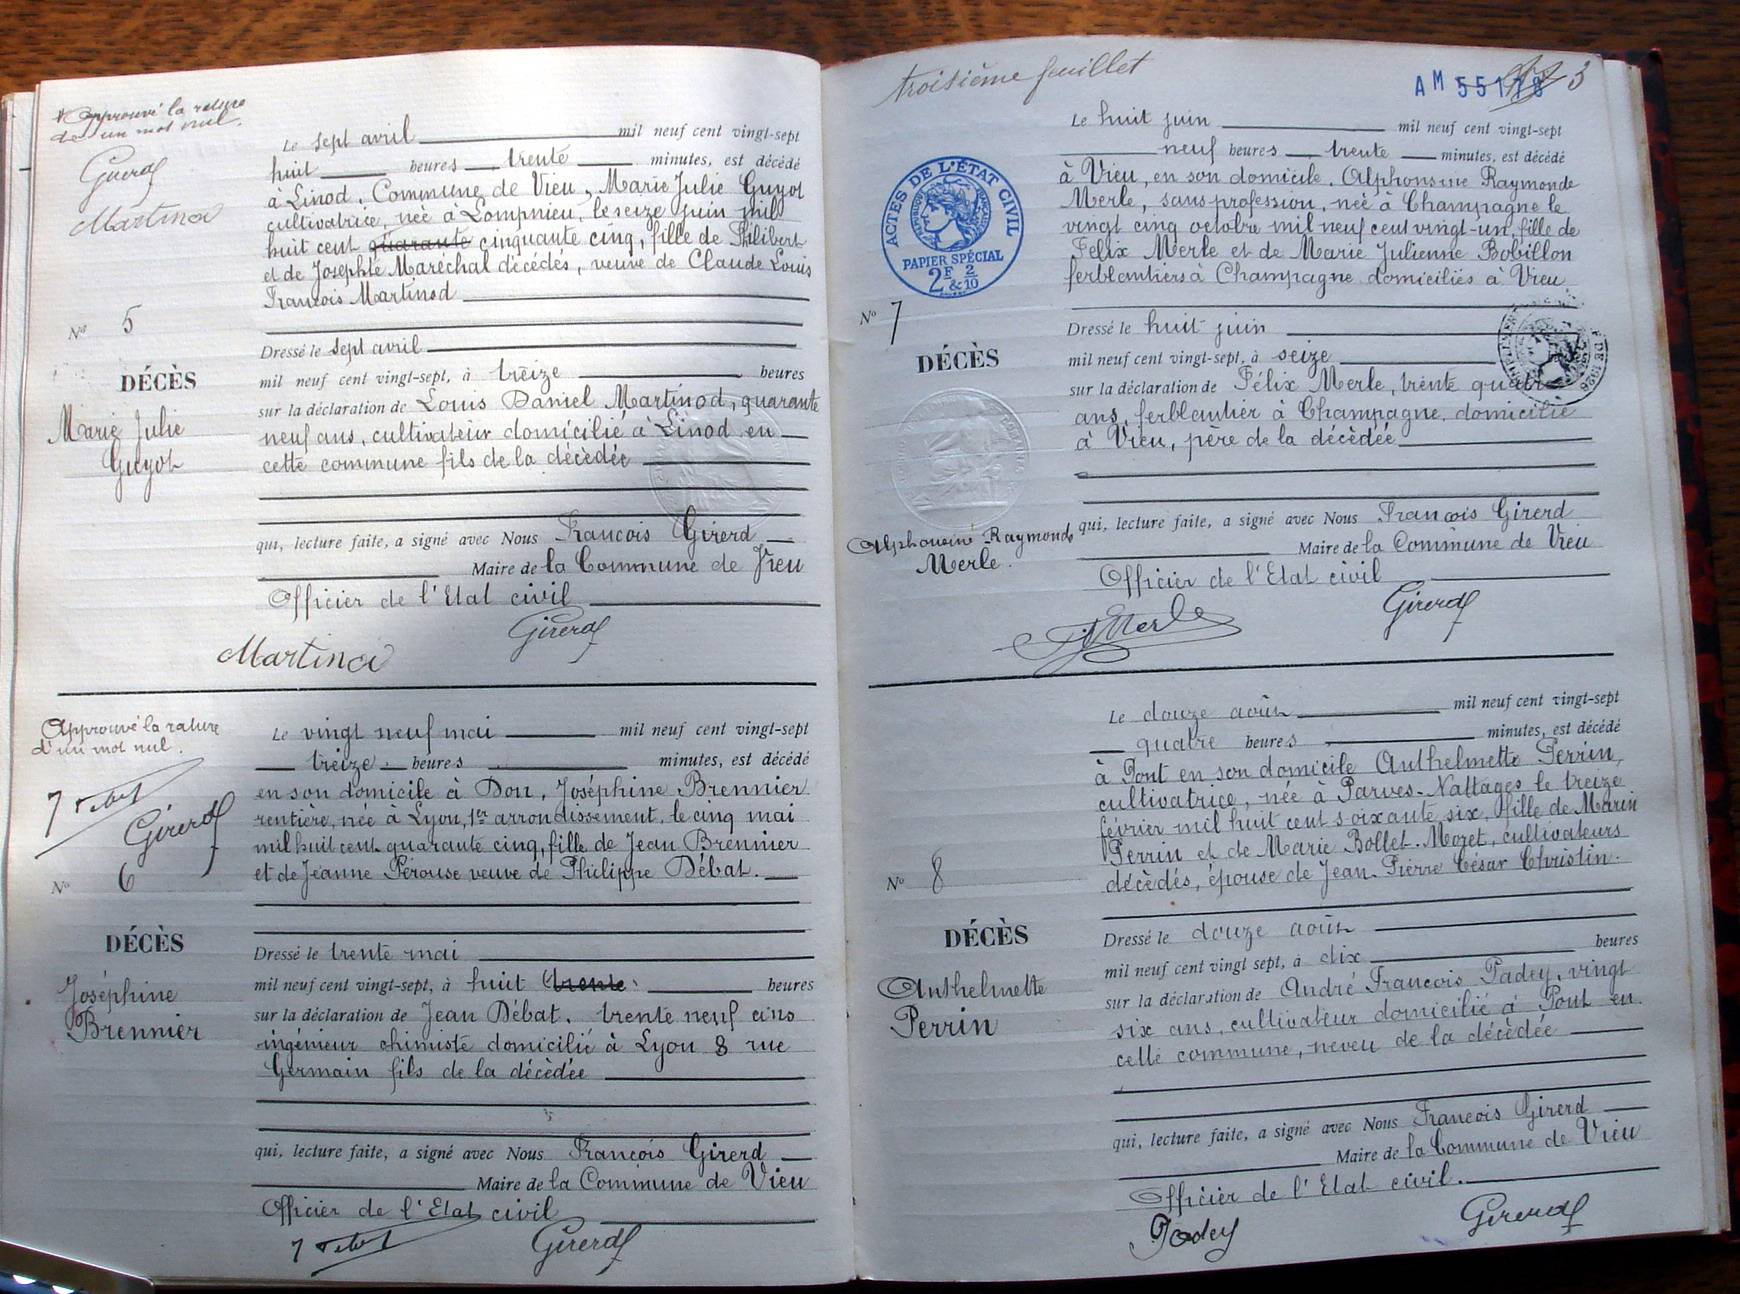 Approuvé la rature
de un mot nul.
Girerd
Martinod
Le sept avril mil neuf cent vingt-sept
huit heures trente minutes, est décédé
à Linod, Commune de Vieu, Marie Julie Guyot
cultivatrice, née à Lompnieu, le seize juin mil
huit cent quarante cinquante cinq, fille de Philibert
et de Josephte Maréchal décédés, veuve de Claude Louis
François Martinod
N° 5
DÉCÈS
Marie Julie
Guyot
Dressé le sept avril
mil neuf cent vingt-sept, à treize heures
sur la déclaration de Louis Daniel Martinod, quarante
neuf ans, cultivateur domicilié à Linod en
cette commune fils de la décèdée
qui, lecture faite, a signé avec Nous François Girerd
Maire de la Commune de Vieu
Officier de l'Etat civil
Girerd
Martinod
Approuvé la rature
d'un mot nul.
J Debat
Girerd
Le vingt neuf mai mil neuf cent vingt-sept
treize heures minutes, est décédé
en son domicile à Don, Joséphine Brennier
rentière, née à Lyon, 1er arrondissement, le cinq mai
mil huit cent quarante cinq, fille de Jean Brennier
et de Jeanne Pérouse veuve de Philippe Débat.
N° 6
DÉCÈS
Joséphine
Brennier
Dressé le trente mai
mil neuf cent vingt-sept, à huit trente heures
sur la déclaration de Jean Débat, trente neuf ans
ingénieur chimiste domicilié à Lyon 8 rue
Germain fils de la décèdée
qui, lecture faite, a signé avec Nous François Girerd
Maire de la Commune de Vieu
Officier de l'Etat civil
J Debat Girerd
troisième feuillet
AM 55178 3
ACTES DE L'ÉTAT CIVIL
RÉPUBLIQUE FRANÇAISE
PAPIER SPÉCIAL
2F & 2/10
Le huit juin mil neuf cent vingt-sept
neuf heures trente minutes, est décédé
à Vieu, en son domicile, Alphonsine Raymonde
Merle, sans profession, née à Champagne le
vingt cinq octobre mil neuf cent vingt-un, fille de
Félix Merle et de Marie Julienne Bobillon
ferblantiers à Champagne domiciliés à Vieu
N° 7
DÉCÈS
Alphonsine Raymonde
Merle.
Dressé le huit juin
mil neuf cent vingt-sept, à seize
sur la déclaration de Félix Merle, trente quatre
ans, ferblantier à Champagne, domicilié
à Vieu, père de la décèdée
qui, lecture faite, a signé avec Nous François Girerd
Maire de la Commune de Vieu
Officier de l'Etat civil
Merle
Girerd
Le douze août mil neuf cent vingt-sept
quatre heures minutes, est décédé
à Pont en son domicile Anthelmette Perrin,
cultivatrice, née à Parves-Nattages le treize
février mil huit cent soixante six, fille de Marin
Perrin et de Marie Bollet-Mozet, cultivateurs
décèdés, épouse de Jean-Pierre César Christin.
N° 8
DÉCÈS
Anthelmette
Perrin
Dressé le douze août
mil neuf cent vingt sept, à dix heures
sur la déclaration de André François Padey, vingt
six ans, cultivateur domicilié à Pont en
cette commune, neveu de la décèdée
qui, lecture faite, a signé avec Nous François Girerd
Maire de la Commune de Vieu
Officier de l'Etat civil.
Padey
Girerd